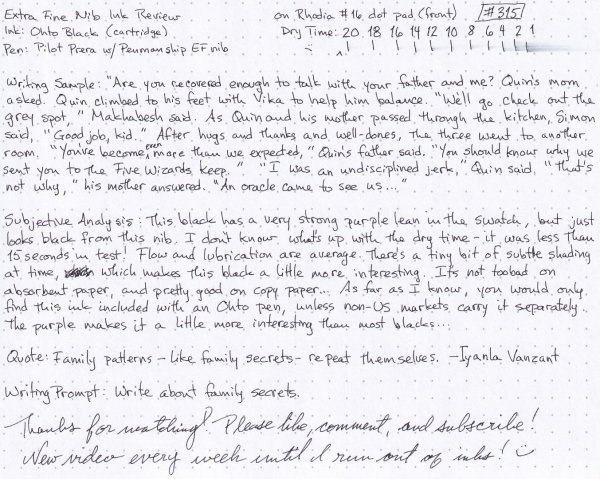 Extra Fine Nib Ink Review on Rhodia #16 dot pad (front) #315
Ink: Ohto Black (cartridge) Dry Time: 20 18 16 14 12 10 8 6 4 2 1
Pen: Pilot Prera w/ Penmanship EF nib
Writing Sample: "Are you recovered enough to talk with your father and me? Quin's mom
asked. Quin climbed to his feet with Vika to help him balance. "We'll go check out the
grey spot," Makhabesh said. As Quin and his mother passed through the kitchen, Simon
said, "Good job, kid." After hugs and thanks and well-dones, the three went to another
room. "You've become even more than we expected," Quin's father said. "You should know why we
sent you to the Five Wizards Keep." "I was an undisciplined jerk," Quin said. "That's
not why," his mother answered. "An oracle came to see us..."
Subjective Analysis: This black has a very strong purple lean in the swatch, but just
looks black from this nib. I don't know what's up with the dry time - it was less than
15 seconds in test! Flow and lubrication are average. There's a tiny bit of subtle shading
at time, which makes this black a little more interesting. It's not too bad on
absorbent paper, and pretty good on copy paper... As far as I know, you would only
find this ink included with an Ohto pen, unless non-US markets carry it separately.
The purple makes it a little more interesting than most blacks...
Quote: Family patterns - like family secrets - repeat themselves. -Iyanla Vanzant
Writing Prompt: Write about family secrets.
Thanks for watching! Please like, comment, and subscribe!
New video every week until I run out of inks! :)